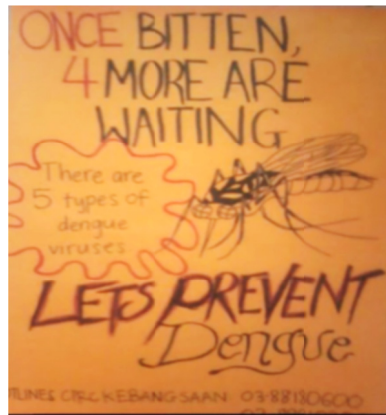 ONCE BITTEN,
4 MORE ARE
WAITING
There are
5 types of
dengue
viruses
LETS PREVENT
Dengue
KEBANGSAAN 03-88180600